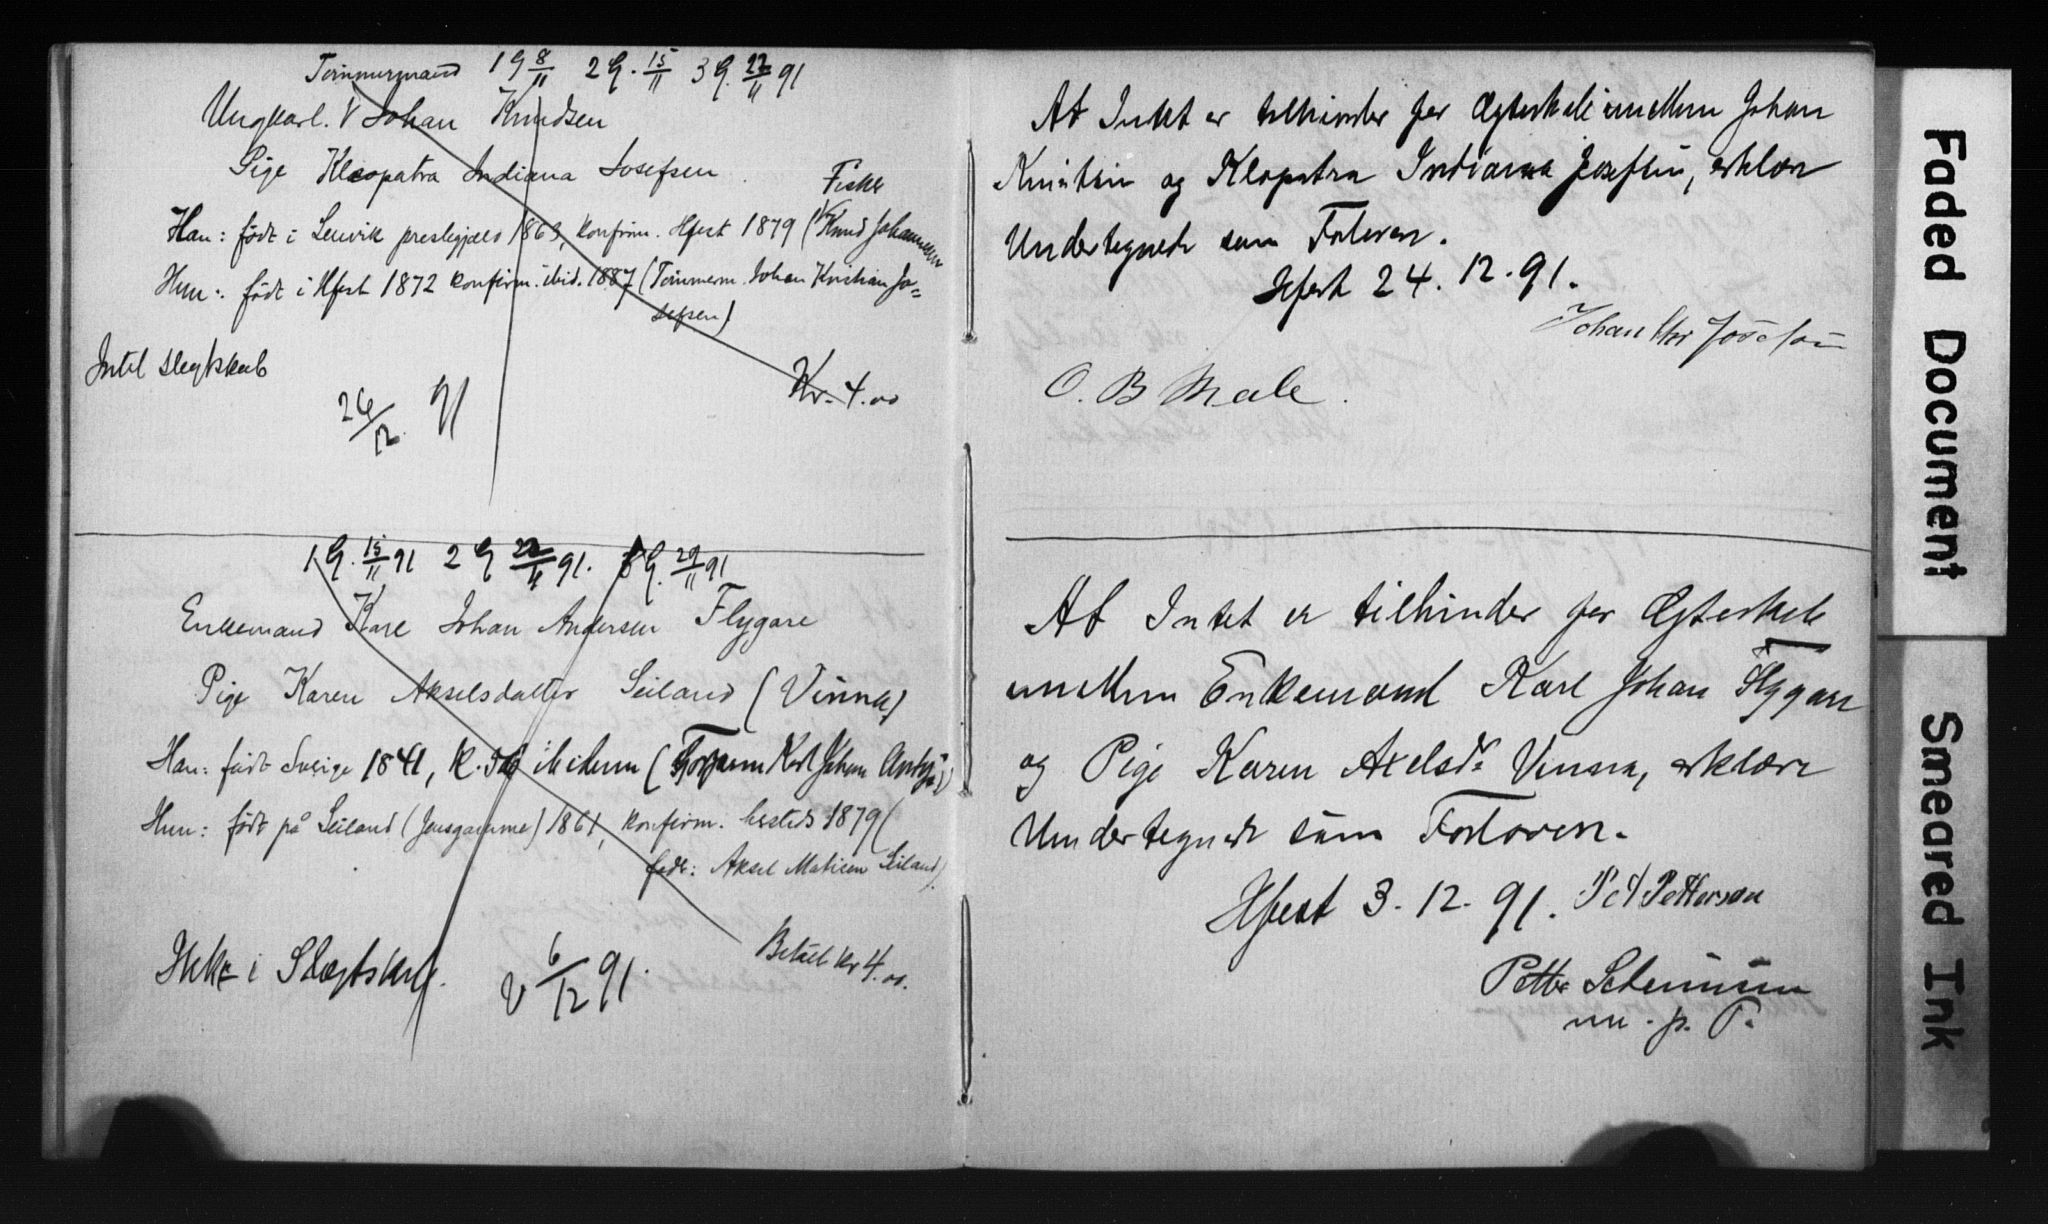 Tømmermand 1 G 8/11 2 G. 15/11 3 G. 22/11 91
Ungkarl. V Johan Knudsen
Pige Kleopatra Indiana Josefsen
Fisker
Han: født i Lenvik præstegjæld 1863, konfirm. Hfest 1879 (Knud Johannesen
Hun: født i Hfest 1872 konfirm. ibid. 1887 (Tømmerm. Johan Kristian Jo=
sefsen)
Intet slegtskab
26/12 91
Kr. 4.00
1 G. 15/11 91 2 G 22/11 91. 3 G. 29/11 91
Enkemand Karl Johan Andersen Flygare
Pige Karen Akselsdatter Seiland (Vinna)
Han: født Sverige 1841, k. 56 ibidem (Karl Johan
Hun: født på Seiland (Jensgamme) 1861, konfirm. herteds 1879 (
fadr: Aksel Matisen Seiland)
Ikke i Slægtskap.
V 6/12 91.
Betalt kr 4.00.
At Intet er tilhinder for Ægteskab imellem Johan
Knudsen og Kleopatra Indiana Josefsen, erklærer
Undertegnede som Forlover.
Hfest 24. 12. 91.
Johan Chr Josefsen
O. B Male.
At Intet er tilhinder for Ægteskab
mellem Enkemand Karl Johan Flygare
og Pige Karen Axelsdr Vinna, erklærer
Undertegnede som Forlover.
Hfest 3. 12. 91. Petterson
Petter
m. p. P.
Faded Document
Smeared Ink